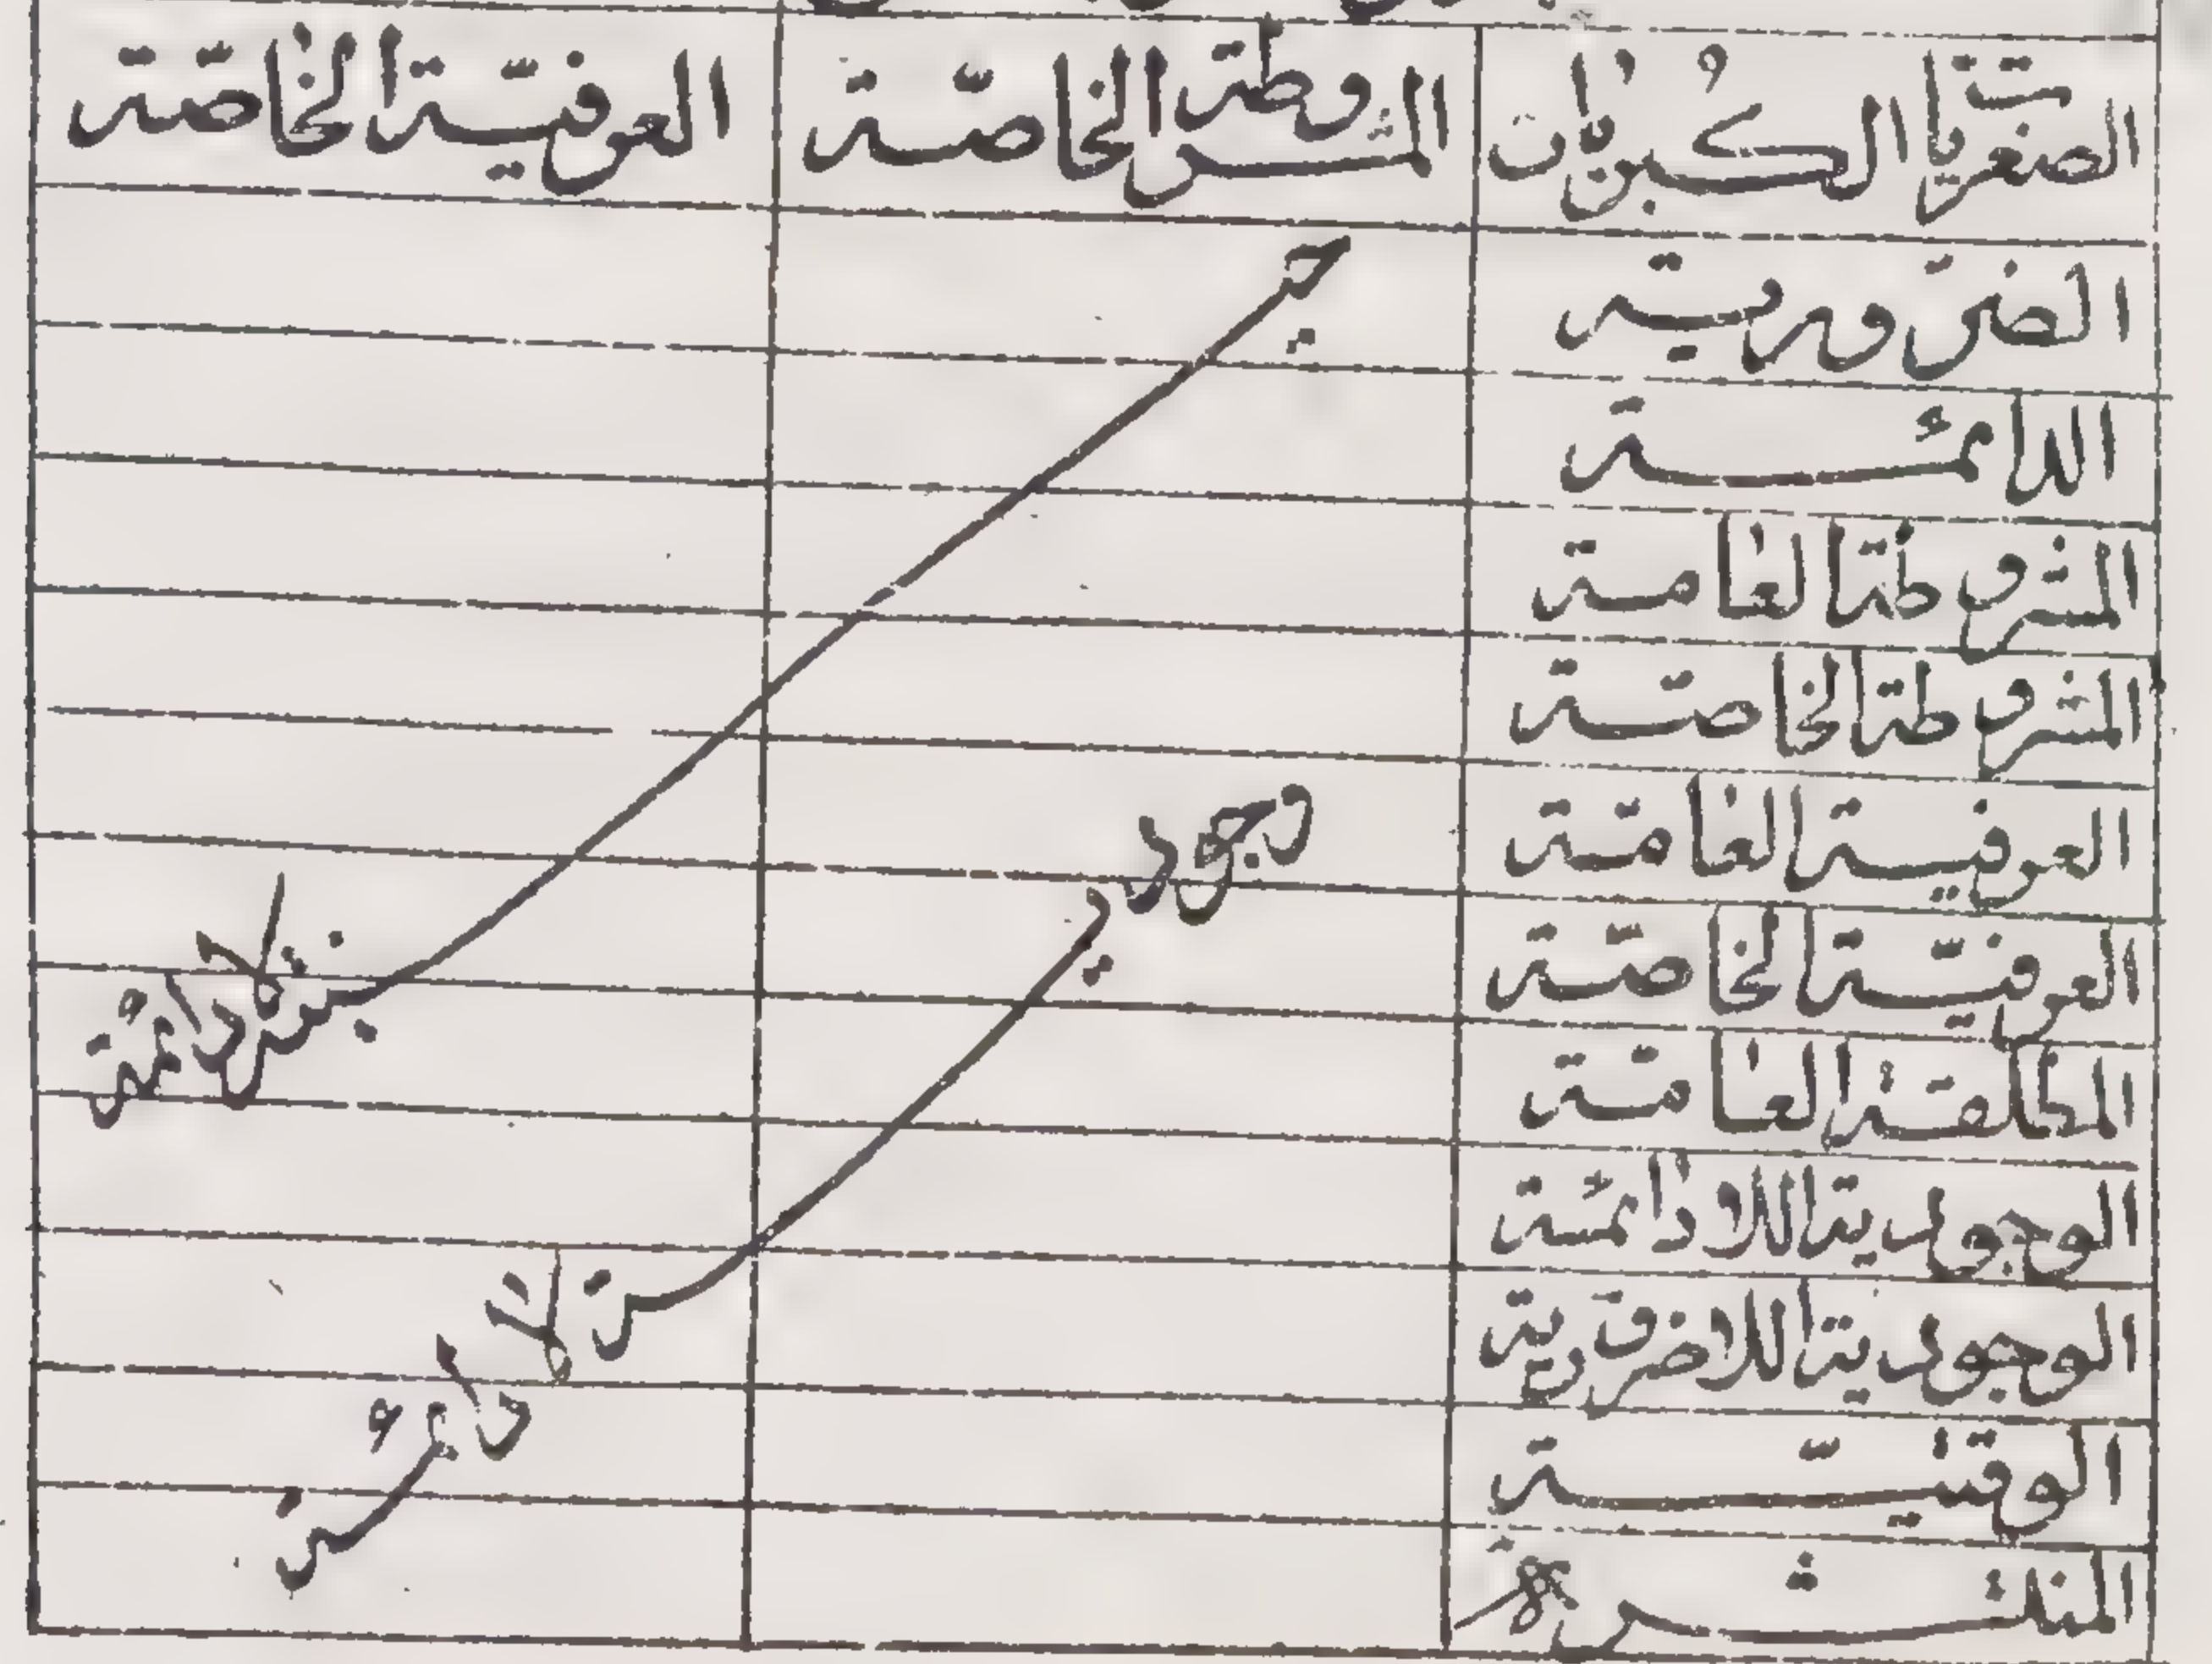 الصغريات الكبريان المشروطة الخاصّة العرفيّة الخاصّة
الضروريّة
الدائمة
المشروطة العامة
المشروطة الخاصّة
العرفية العامّة
العرفيّة الخاصّة
المطلقة العامّة
الوجودية اللادائمة
الوجودية اللاضرورية
الوقتيّة
المنتشرة
حينية لا دائمة
وجودية لا دائمة